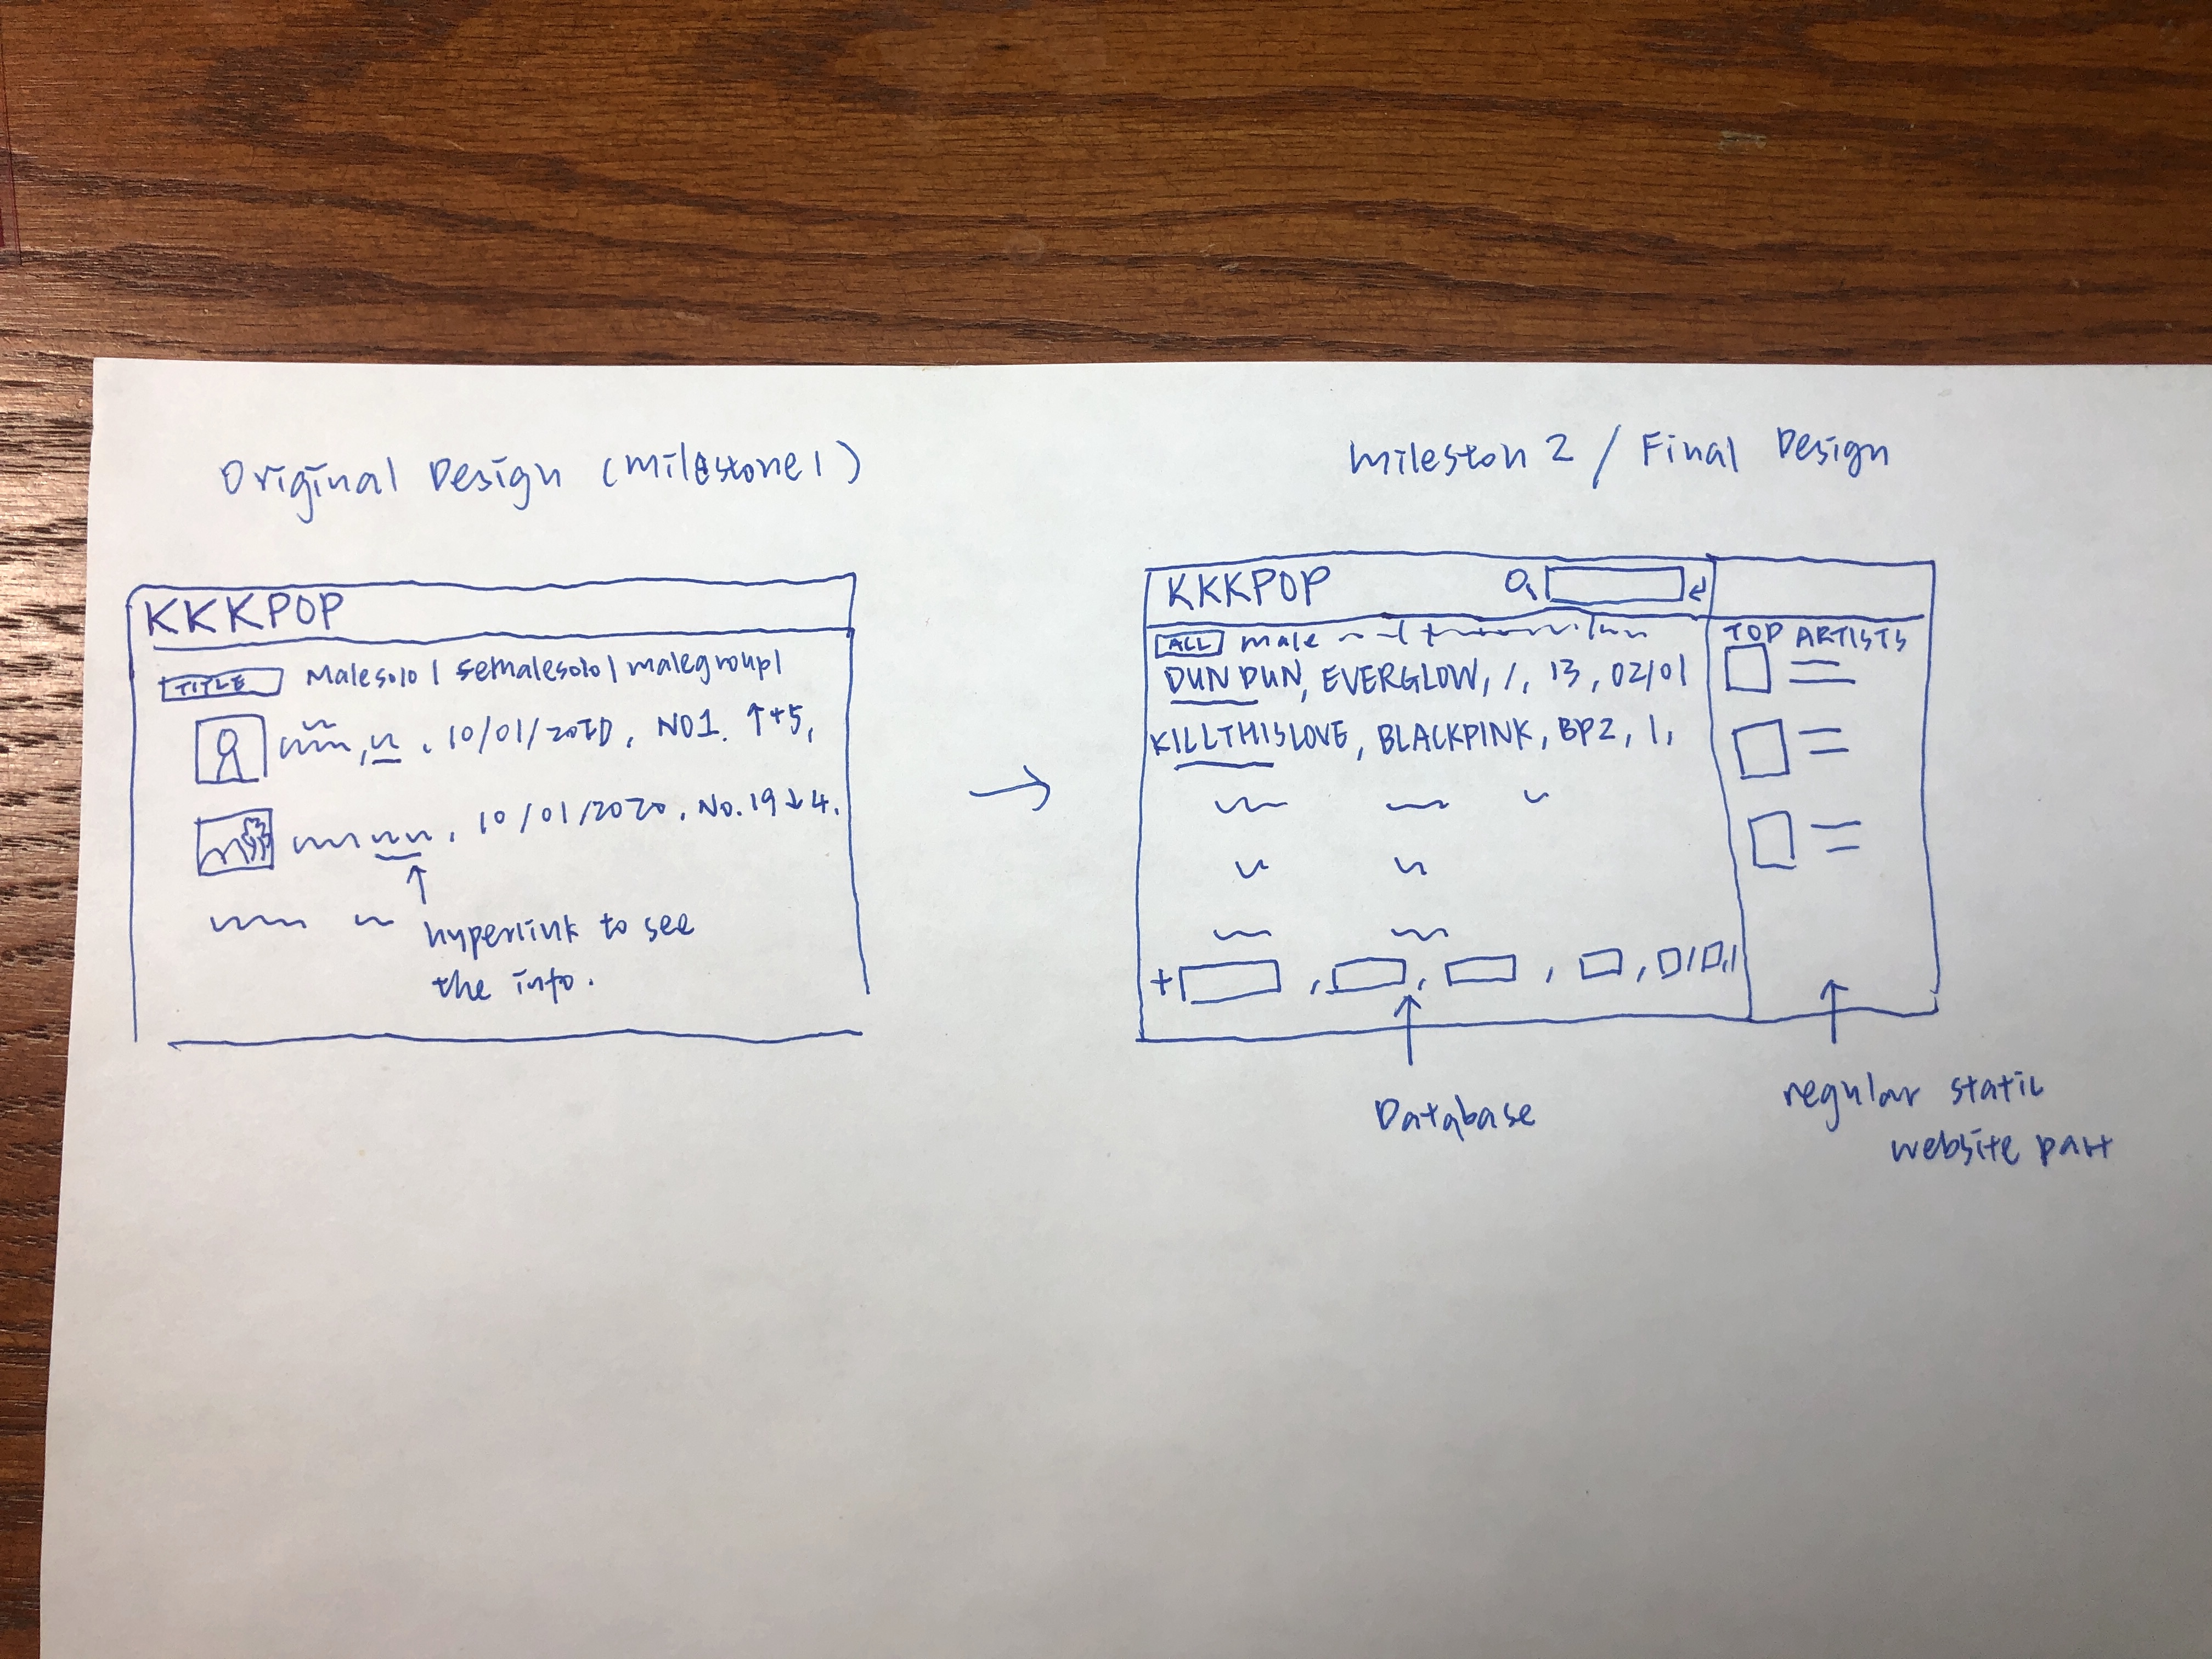 Original Design (Milestone 1)
KKKPOP
TITLE Malesolo | femalesolo | malegroup |
, 10/01/2020, NO1. ↑+5,
, 10/01/2020, No.19↓4.
↑
hyperlink to see
the info.
→
Mileston 2 / Final Design
KKKPOP
ALL male
DUN DUN, EVERGLOW, /, 13, 02/01
KILLTHISLOVE, BLACKPINK, BP2, 1,
+ , , , , / /
Database
TOP ARTISTS
regular static
website part